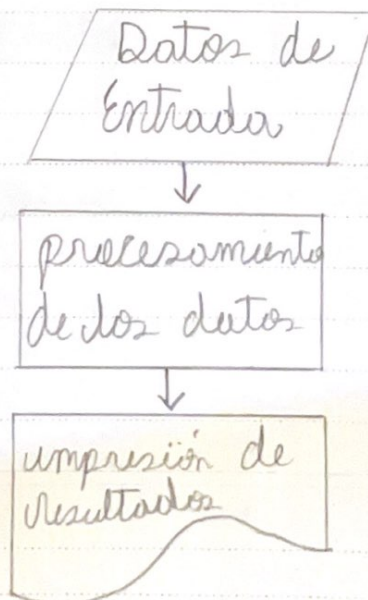 Datos de
Entrada
procesamiento
de los datos
impresión de
resultados